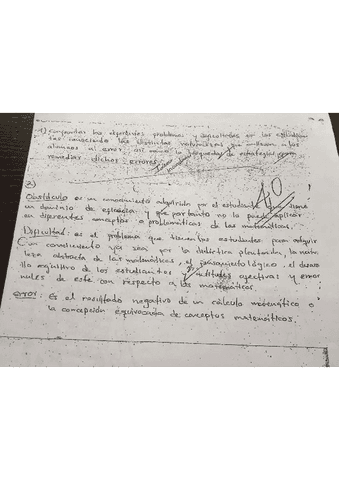 1) comprender los diferentes problemas y dificultades en los estudiantes
tes conociendo las distintas naturalezas que inducen a los
alumnos al error, así como la búsqueda de estrategias para
remediar dichos errores.
10
2)
Obstáculo: es un conocimiento adquirido por el estudiante que tiene
un dominio de eficacia y que por tanto no lo puede aplicar
en diferentes conceptos o problemáticas de las matemáticas.
Dificultad: es el problema que tienen los estudiantes para adquirir
un conocimiento ya sea por la didáctica planteada, la natu
leza abstracta de las matemáticas, el pensamiento lógico, el desarro
llo cognitivo de los estudiantes y actitudes afectivas y emocio
nales de este con respecto a las matemáticas.
error: Es el resultado negativo de un cálculo matemático o
la concepción equivocada de conceptos matemáticos.